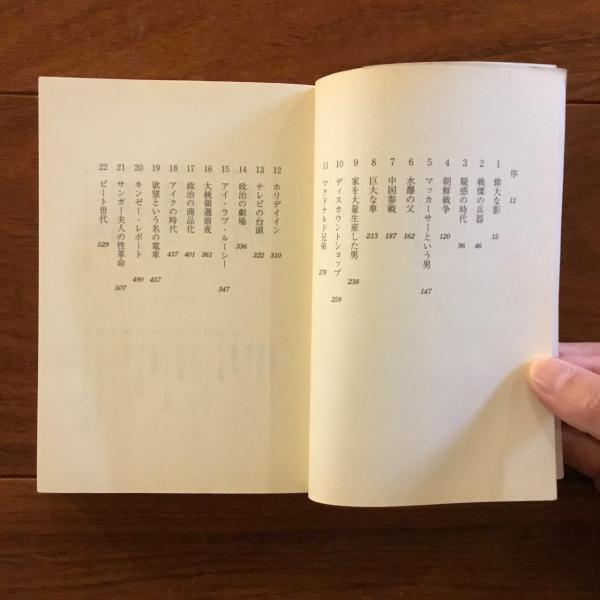 序 11
1 偉大な影 15
2 戦慄の兵器 46
3 疑惑の時代 96
4 朝鮮戦争 120
5 マッカーサーという男 147
6 水爆の父 162
7 中国参戦 187
8 巨大な車 213
9 家を大量生産した男 238
10 ディスカウントショップ 259
11 マクドナルド兄弟 278
12 ホリデイイン 310
13 テレビの台頭 322
14 政治の劇場 336
15 アイ・ラブ・ルーシー 347
16 大統領選前夜 361
17 政治の商品化 401
18 アイクの時代 437
19 欲望という名の電車 457
20 キンゼー・レポート 490
21 サンガー夫人の性革命 507
22 ビート世代 529